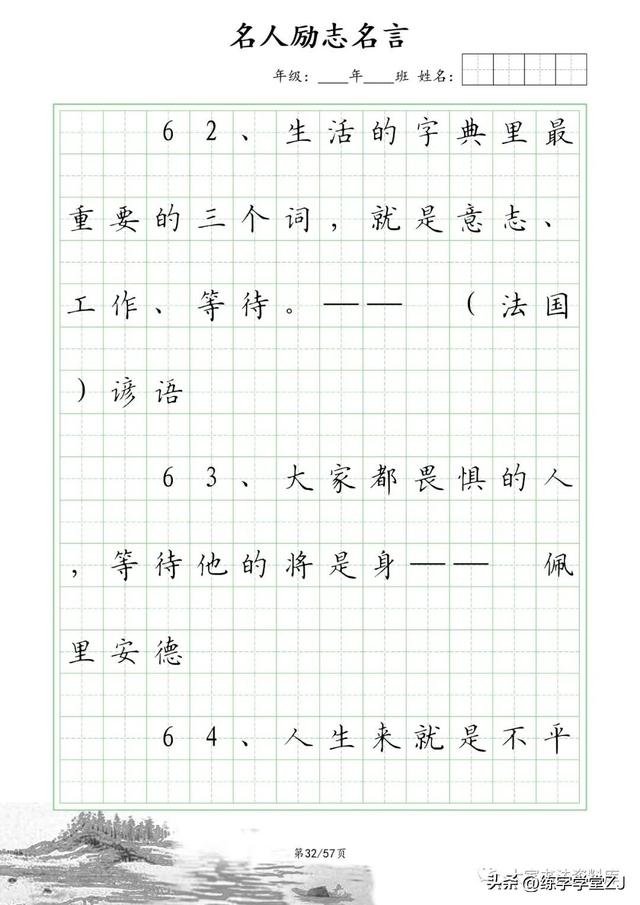 名人励志名言
年级：____年____班 姓名：
62、生活的字典里最
重要的三个词，就是意志、
工作、等待。—— （法国
）谚语
63、大家都畏惧的人
，等待他的将是身—— 佩
里安德
64、人生来就是不平
第32/57页
头条 @练字学堂ZJ